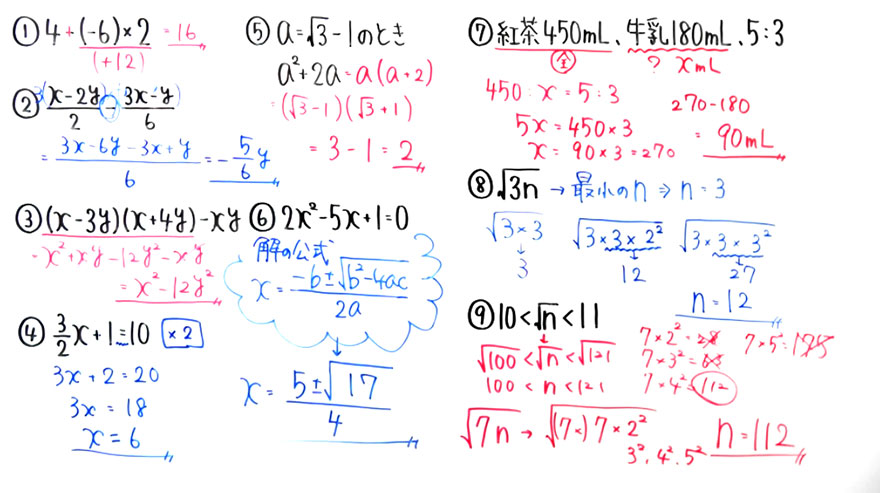 ① 4+(-6)×2 = 16
(+12)
② 3(x-2y)/2 - 3x-y/6
= 3x-6y-3x+y/6 = -5/6y
③ (x-3y)(x+4y)-xy
= x²+xy-12y²-xy
= x²-12y²
④ 3/2x+1=10 ×2
3x+2=20
3x=18
x=6
⑤ a=√3-1のとき
a²+2a=a(a+2)
=(√3-1)(√3+1)
=3-1=2
⑥ 2x²-5x+1=0
解の公式
x=-b±√b²-4ac/2a
x=5±√17/4
⑦ 紅茶450mL、牛乳180mL、5:3
全 ? xmL
450:x=5:3
5x=450×3
x=90×3=270
270-180
=90mL
⑧ √3n → 最小のn ⇒ n=3
√3×3 √3×3×2² √3×3×3²
3 12 27
n=12
⑨ 10<√n<11
√100<√n<√121
100<n<121
7×2²=28
7×3²=63
7×4²=112
7×5²=175
√7n → √(7×)7×2²
3²,4²,5²
n=112